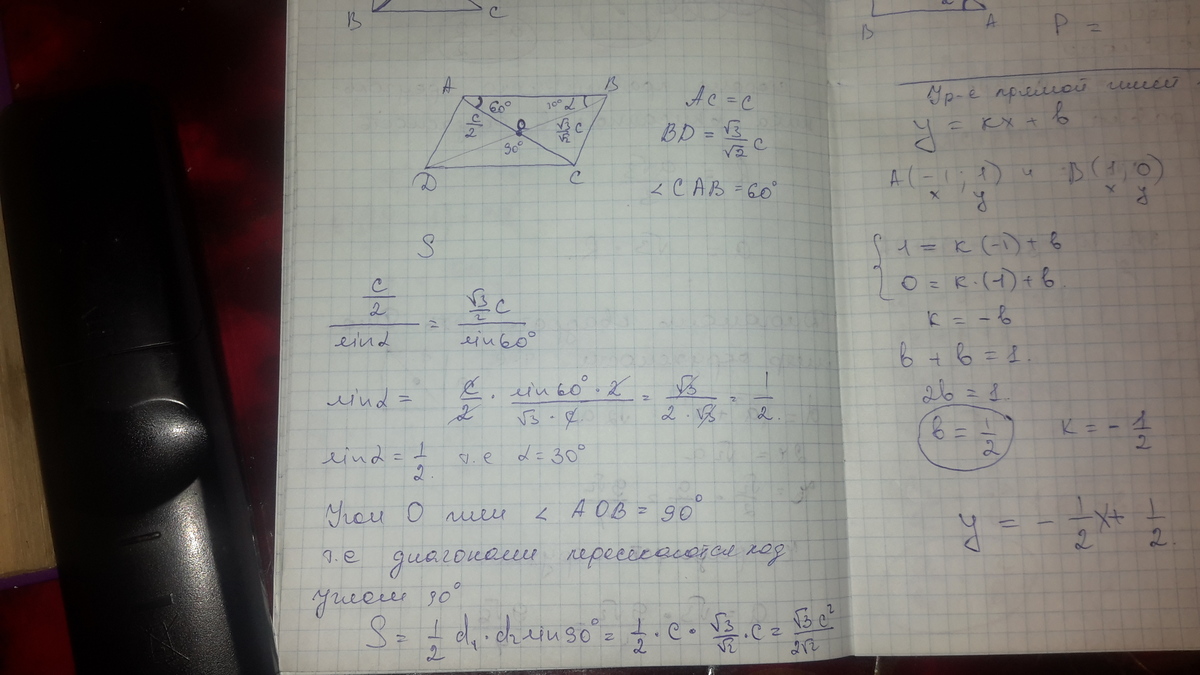 B C
A B
60° 30° α
c/2 O √3/√2 c
90°
D C
AC = c
BD = √3/√2 c
∠CAB = 60°
S
(c/2)/sinα = (√3/2 c)/sin60°
sinα = c/2 · (sin60° · 2)/(√3 · c) = √3/(2 · √3) = 1/2.
sinα = 1/2. т.е α = 30°
Угол O или ∠ AOB = 90°
т.е диагонали пересекаются под
углом 90°
S = 1/2 d₁ · d₂ sin90° = 1/2 · c · √3/√2 · c = √3 c²/2√2
B A
P =
Ур-е прямой имеет
y = kx + b
A(-1; 1) и B(1; 0)
x y x y
1 = k(-1) + b
0 = k·(1) + b.
k = -b
b + b = 1.
2b = 1.
b = 1/2 k = -1/2
y = -1/2 x + 1/2.